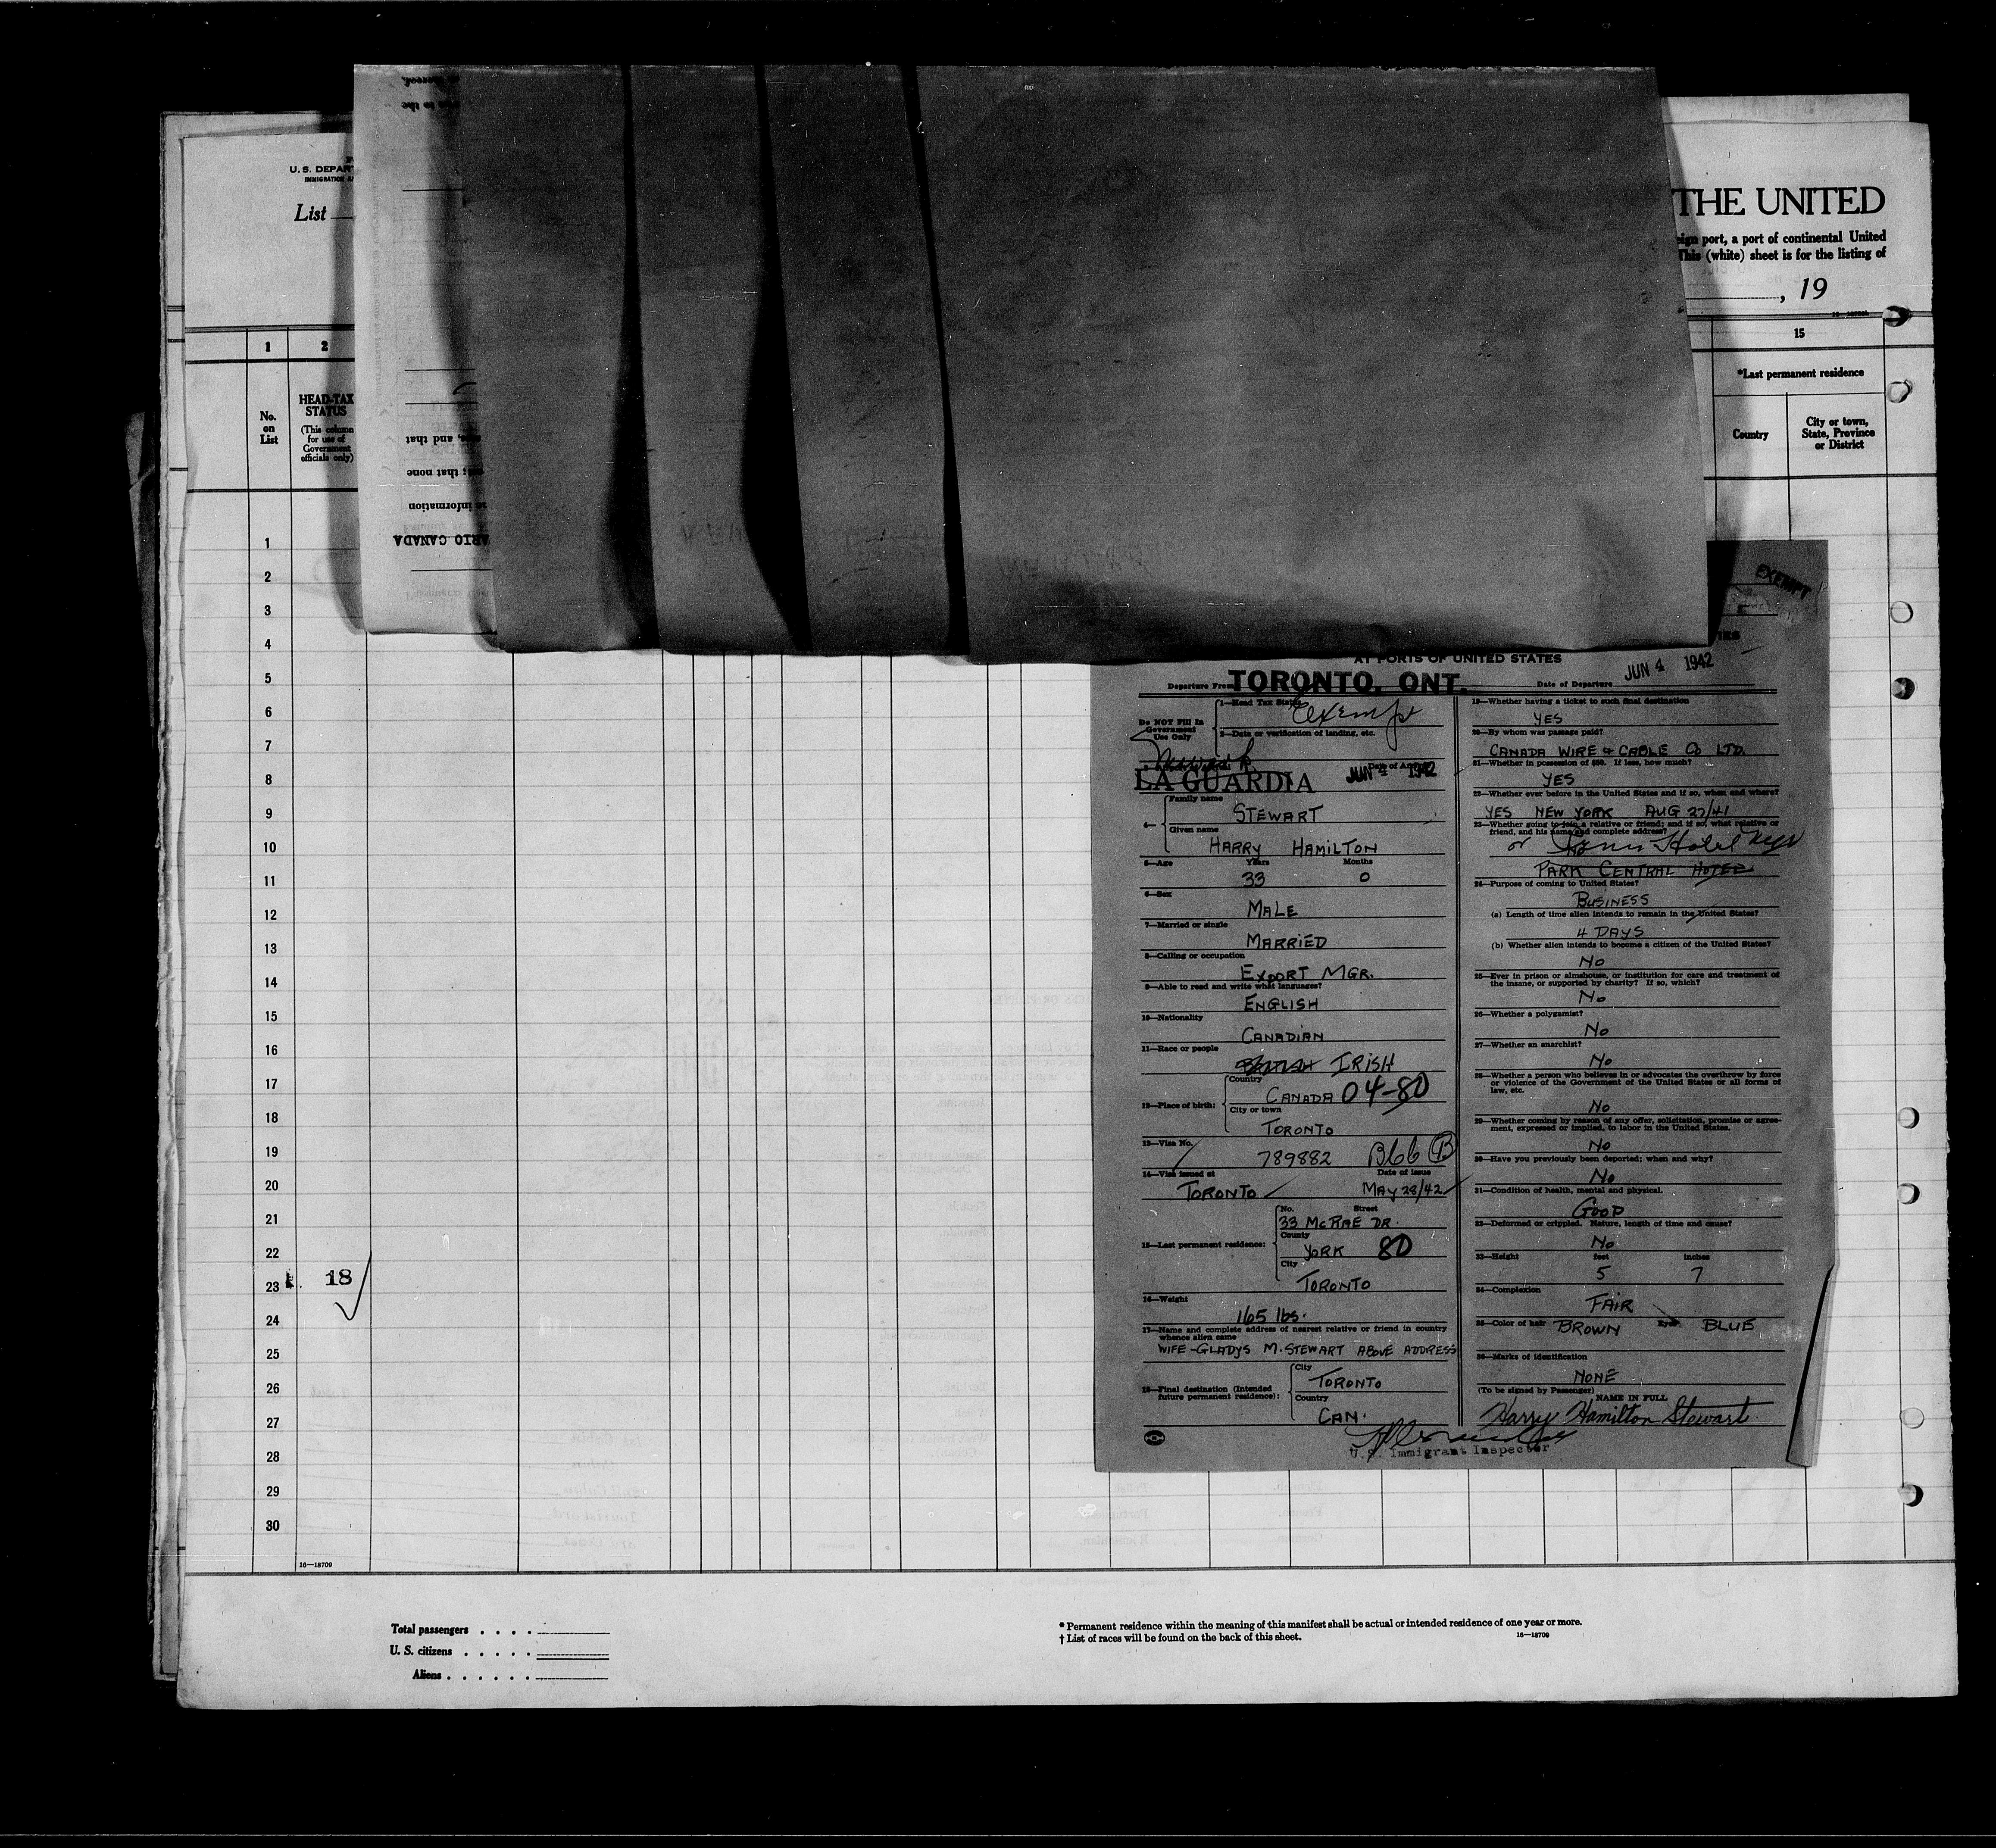 U. S. DEPAR
IMMIGRATION
List
THE UNITED
port, a port of continental United
This (white) sheet is for the listing of
, 19
1
2
15
No.
on
List
HEAD-TAX
STATUS
(This column
for use of
Government
officials only)
*Last permanent residence
Country
City or town,
State, Province
or District
and that
that none
information
ARIO CANADA
1
2
3
4
5
6
7
8
9
10
11
12
13
14
15
16
17
18
19
20
21
22
23
18
24
25
26
27
28
29
30
16—18709
EXEMPT
AT PORTS OF UNITED STATES
Departure From TORONTO, ONT.
Date of Departure JUN 4 1942
Do NOT Fill In
Government
Use Only
1—Head Tax Status Exempt
2—Data or verification of landing, etc.
Date of Arrival
LA GUARDIA JUN 4 1942
4—
Family name
STEWART
Given name
HARRY HAMILTON
5—Age Years Months
33 0
6—Sex
MALE
7—Married or single
MARRIED
8—Calling or occupation
EXPORT MGR.
9—Able to read and write what languages?
ENGLISH
10—Nationality
CANADIAN
11—Race or people
BRITISH IRISH
12—Place of birth:
Country
CANADA 04-80
City or town
TORONTO
13—Visa No.
789882 B66 B
14—Visa issued at Date of issue
TORONTO MAY 28/42
15—Last permanent residence:
No. Street
33 McRAE DR.
County
YORK 80
City
TORONTO
16—Weight
165 lbs.
17—Name and complete address of nearest relative or friend in country
whence alien came
WIFE - GLADYS M. STEWART ABOVE ADDRESS
18—Final destination (Intended
future permanent residence):
City
TORONTO
Country
CAN.
19—Whether having a ticket to such final destination
YES
20—By whom was passage paid?
CANADA WIRE & CABLE Co LTD.
21—Whether in possession of $50. If less, how much?
YES
22—Whether ever before in the United States and if so, when and where?
YES NEW YORK AUG 27/41
23—Whether going to join a relative or friend; and if so, what relative or
friend, and his name and complete address?
or Hotel
PARK CENTRAL HOTEL
24—Purpose of coming to United States?
BUSINESS
(a) Length of time alien intends to remain in the United States?
4 DAYS
(b) Whether alien intends to become a citizen of the United States?
NO
25—Ever in prison or almshouse, or institution for care and treatment of
the insane, or supported by charity? If so, which?
No
26—Whether a polygamist?
No
27—Whether an anarchist?
No
28—Whether a person who believes in or advocates the overthrow by force
or violence of the Government of the United States or all forms of
law, etc.
No
29—Whether coming by reason of any offer, solicitation, promise or agree-
ment, expressed or implied, to labor in the United States.
No
30—Have you previously been deported; when and why?
No
31—Condition of health, mental and physical.
GOOD
32—Deformed or crippled. Nature, length of time and cause?
No
33—Height feet inches
5 7
34—Complexion
FAIR
35—Color of hair BROWN Eyes BLUE
36—Marks of identification
NONE
(To be signed by Passenger) NAME IN FULL
Harry Hamilton Stewart
U.S. Immigrant Inspector
Total passengers
U. S. citizens
Aliens
* Permanent residence within the meaning of this manifest shall be actual or intended residence of one year or more.
† List of races will be found on the back of this sheet.
16—18709